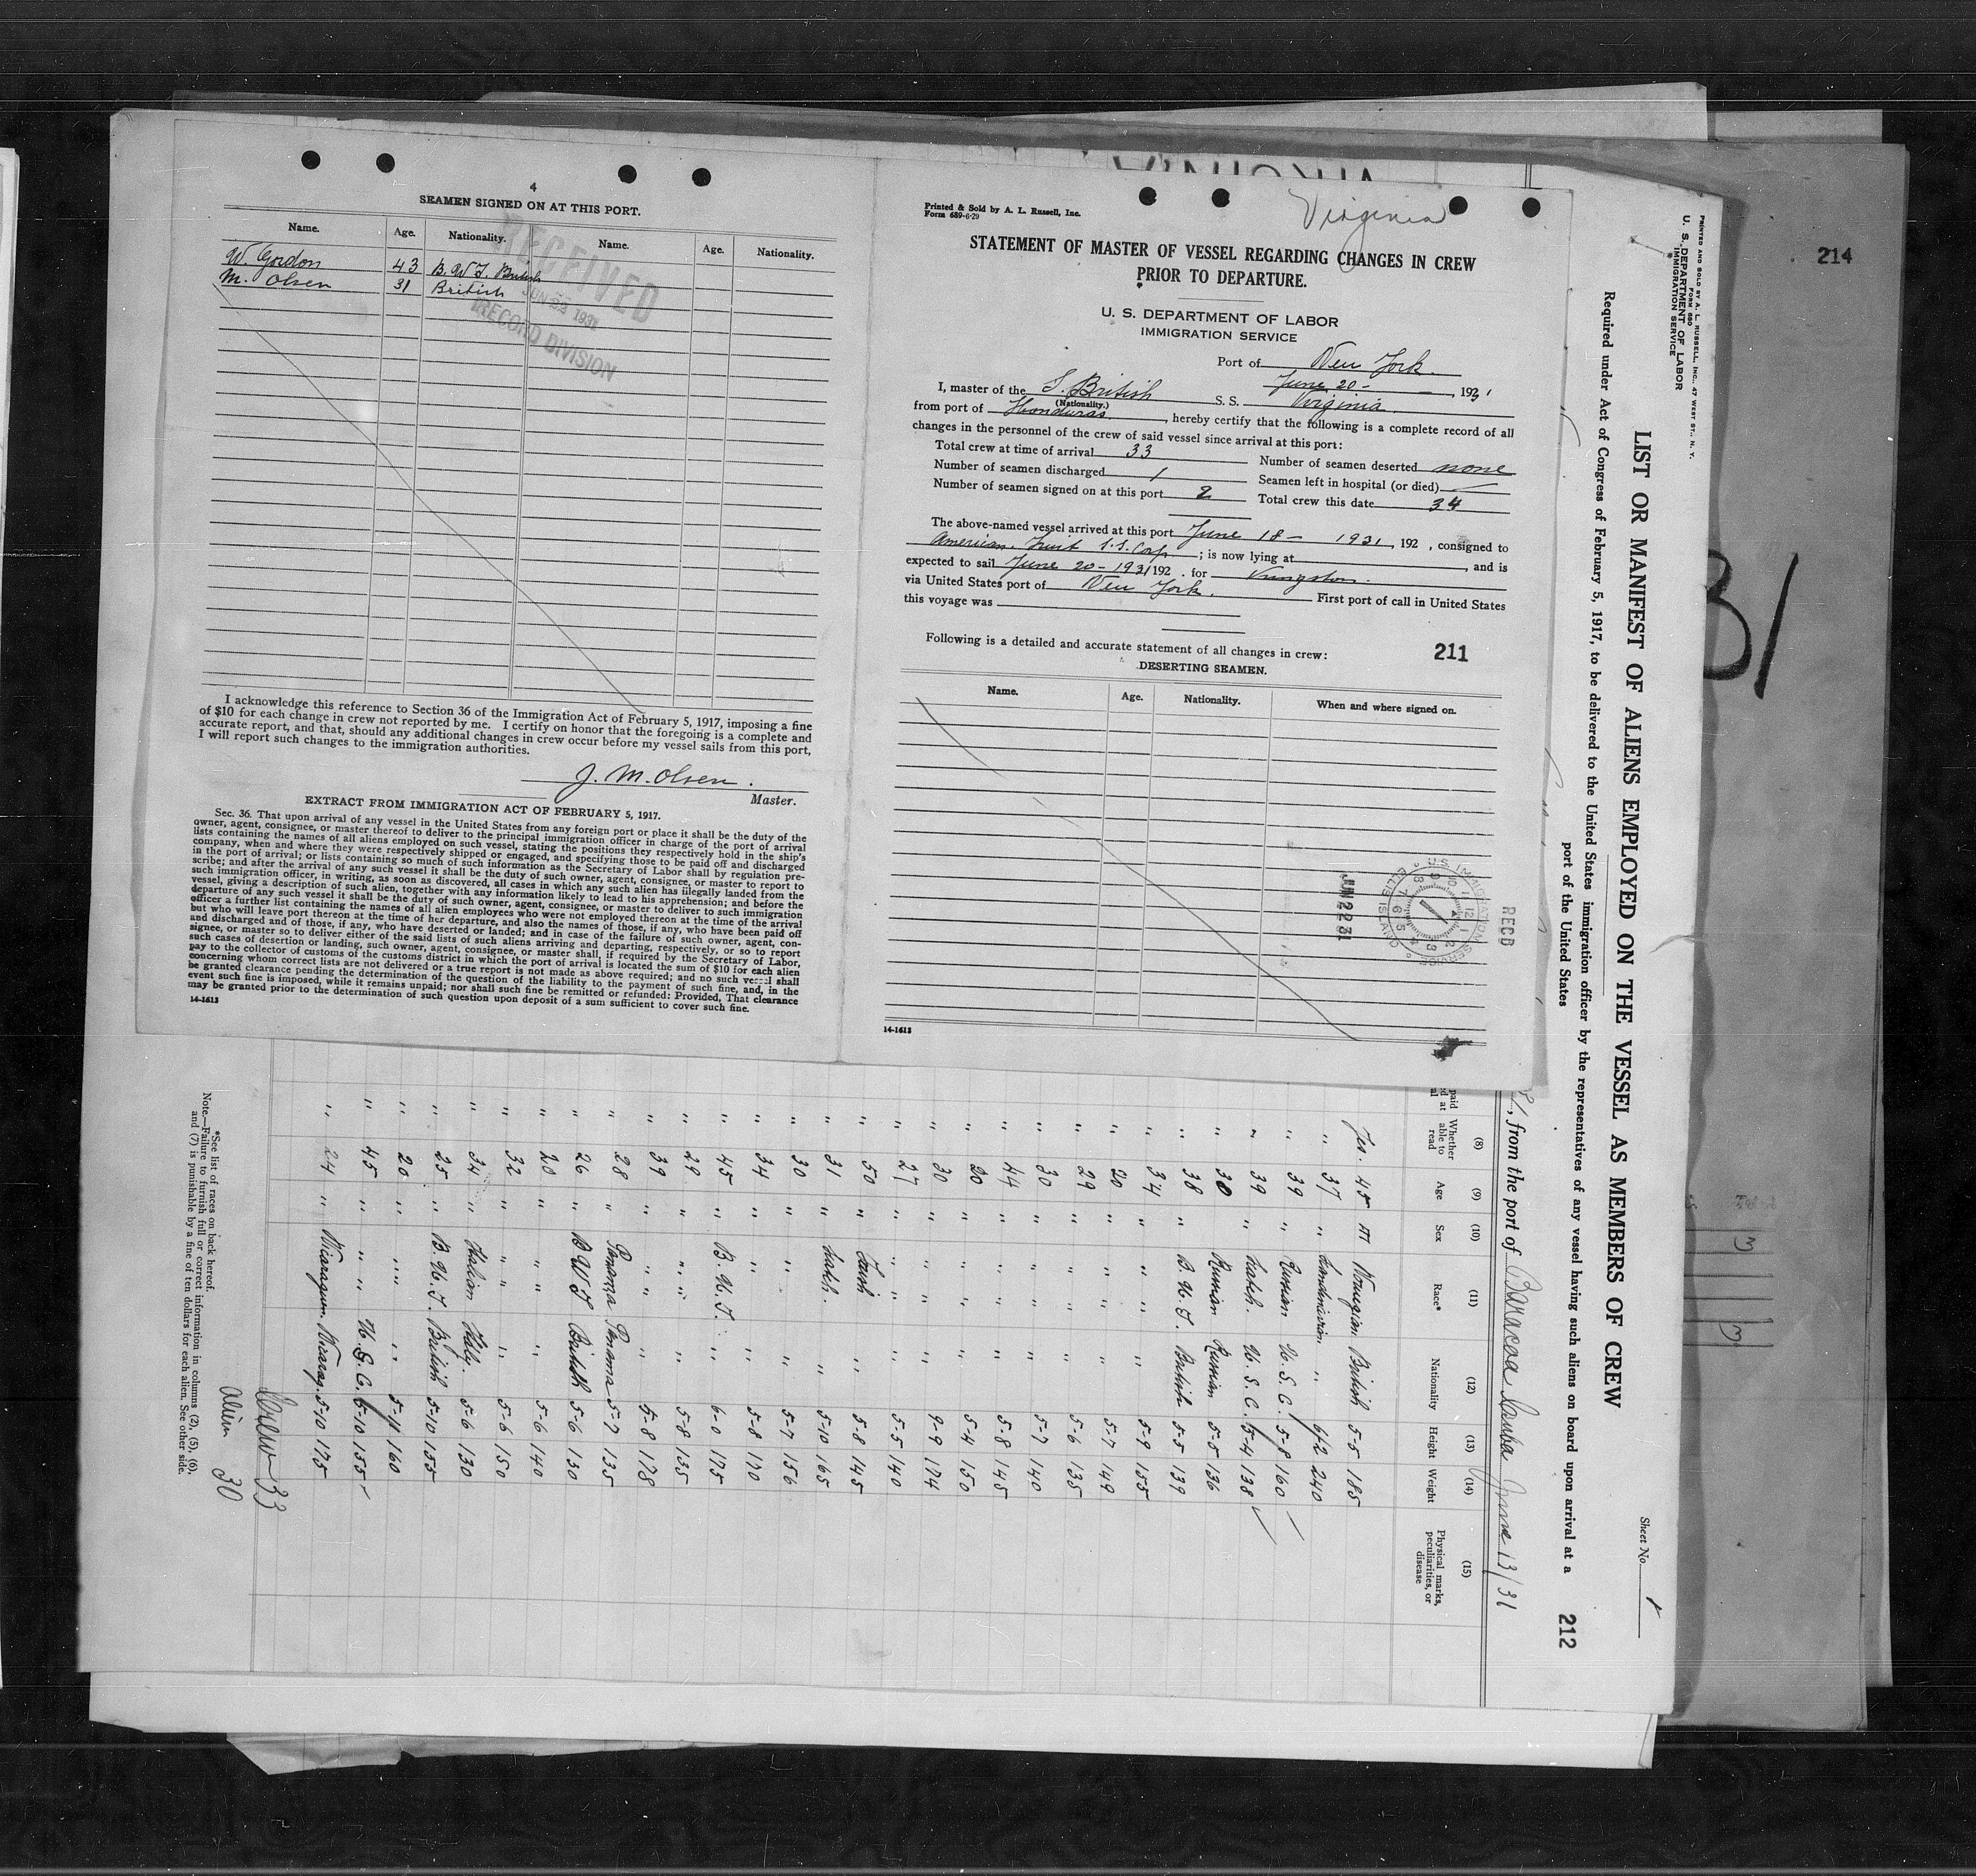 4
SEAMEN SIGNED ON AT THIS PORT.
Name. Age. Nationality. Name. Age. Nationality.
W Gordon 43 B.W.I. British
M. Olsen 31 British
RECEIVED
JUN 23 1931
RECORD DIVISION
I acknowledge this reference to Section 36 of the Immigration Act of February 5, 1917, imposing a fine
of $10 for each change in crew not reported by me. I certify on honor that the foregoing is a complete and
accurate report, and that, should any additional changes in crew occur before my vessel sails from this port,
I will report such changes to the immigration authorities.
J. M. Olsen.
Master.
EXTRACT FROM IMMIGRATION ACT OF FEBRUARY 5, 1917.
Sec. 36. That upon arrival of any vessel in the United States from any foreign port or place it shall be the duty of the
owner, agent, consignee, or master thereof to deliver to the principal immigration officer in charge of the port of arrival
lists containing the names of all aliens employed on such vessel, stating the positions they respectively hold in the ship's
company, when and where they were respectively shipped or engaged, and specifying those to be paid off and discharged
in the port of arrival; or lists containing so much of such information as the Secretary of Labor shall by regulation pre-
scribe; and after the arrival of any such vessel it shall be the duty of such owner, agent, consignee, or master to report to
such immigration officer, in writing, as soon as discovered, all cases in which any such alien has illegally landed from the
vessel, giving a description of such alien, together with any information likely to lead to his apprehension; and before the
departure of any such vessel it shall be the duty of such owner, agent, consignee, or master to deliver to such immigration
officer a further list containing the names of all alien employees who were not employed thereon at the time of the arrival
but who will leave port thereon at the time of her departure, and also the names of those, if any, who have been paid off
and discharged and of those, if any, who have deserted or landed; and in case of the failure of such owner, agent, con-
signee, or master so to deliver either of the said lists of such aliens arriving and departing, respectively, or so to report
such cases of desertion or landing, such owner, agent, consignee, or master shall, if required by the Secretary of Labor,
pay to the collector of customs of the customs district in which the port of arrival is located the sum of $10 for each alien
concerning whom correct lists are not delivered or a true report is not made as above required; and no such vessel shall
be granted clearance pending the determination of the question of the liability to the payment of such fine, and, in the
event such fine is imposed, while it remains unpaid; nor shall such fine be remitted or refunded: Provided, That clearance
may be granted prior to the determination of such question upon deposit of a sum sufficient to cover such fine.
14-1613
Printed & Sold by A. L. Russell, Inc.
Form 689-6-29
Virginia
STATEMENT OF MASTER OF VESSEL REGARDING CHANGES IN CREW
PRIOR TO DEPARTURE.
U. S. DEPARTMENT OF LABOR
IMMIGRATION SERVICE
Port of New York.
June 20 - , 1931
I, master of the British S. S. Virginia
(Nationality.)
from port of Honduras, hereby certify that the following is a complete record of all
changes in the personnel of the crew of said vessel since arrival at this port:
Total crew at time of arrival 33
Number of seamen deserted none
Number of seamen discharged 1
Seamen left in hospital (or died)
Number of seamen signed on at this port 2
Total crew this date 34
The above-named vessel arrived at this port June 18 - 1931, 192 , consigned to
American Fruit S.S. Corp ; is now lying at , and is
expected to sail June 20 - 1931 192 . for Kingston.
via United States port of New York. First port of call in United States
this voyage was
Following is a detailed and accurate statement of all changes in crew:
211
DESERTING SEAMEN.
Name. Age. Nationality. When and where signed on.
U S IMMIGRATION SERVICE
ELLIS ISLAND
JUN 22 31
RECD
14-1613
PRINTED AND SOLD BY A. L. RUSSELL, INC., 47 WEST ST., N. Y.
FORM 680
U. S. DEPARTMENT OF LABOR
IMMIGRATION SERVICE
LIST OR MANIFEST OF ALIENS EMPLOYED ON THE VESSEL AS MEMBERS OF CREW
Sheet No. 1
Required under Act of Congress of February 5, 1917, to be delivered to the United States immigration officer by the representatives of any vessel having such aliens on board upon arrival at a
port of the United States
212
, from the port of Baracoa Cuba June 13/31
(8) (9) (10) (11) (12) (13) (14) (15)
Whether able to read Age Sex Race* Nationality Height Weight Physical marks, peculiarities, or disease
Yes. 45 m Norwegian British 5-5 185
" 37 " Scandinavian " 6/2 240
" 39 " Russian U.S.C. 5-8 160
" 39 " U.S.C. 5-4 138
" 30 " Russian Russian 5-5 136
" 38 " B.W.I. British 5-5 139
" 34 " " " 5-9 155
" 20 " " " 5-7 149
" 29 " " " 5-6 135
" 30 " " " 5-7 140
" 44 " " " 5-8 145
" 20 " " " 5-4 150
" 30 " " " 9-9 174
" 27 " " " 5-5 140
" 50 " " 5-8 145
" 31 " " 5-10 165
" 30 " " " 5-7 156
" 34 " " " 5-8 170
" 45 " B.W.I. " 6-0 175
" 29 " " " 5-8 135
" 39 " " " 5-8 178
" 28 " Panama Panama 5-7 135
" 26 " B W I British 5-6 130
" 20 " " " 5-6 140
" 32 " " " 5-6 150
" 34 " Italian Italy. 5-6 130
" 25 " B.W.I. British 5-10 155
" 20 " " " 5-11 160
" 45 " " U.S.C. 5-10 155
" 24 " Nicaraguan Nicarag. 5-10 175
Crew 33
Alien 30
*See list of races on back hereof.
Note.—Failure to furnish full or correct information in columns (2), (5), (6),
and (7) is punishable by a fine of ten dollars for each alien. See other side.
214
31